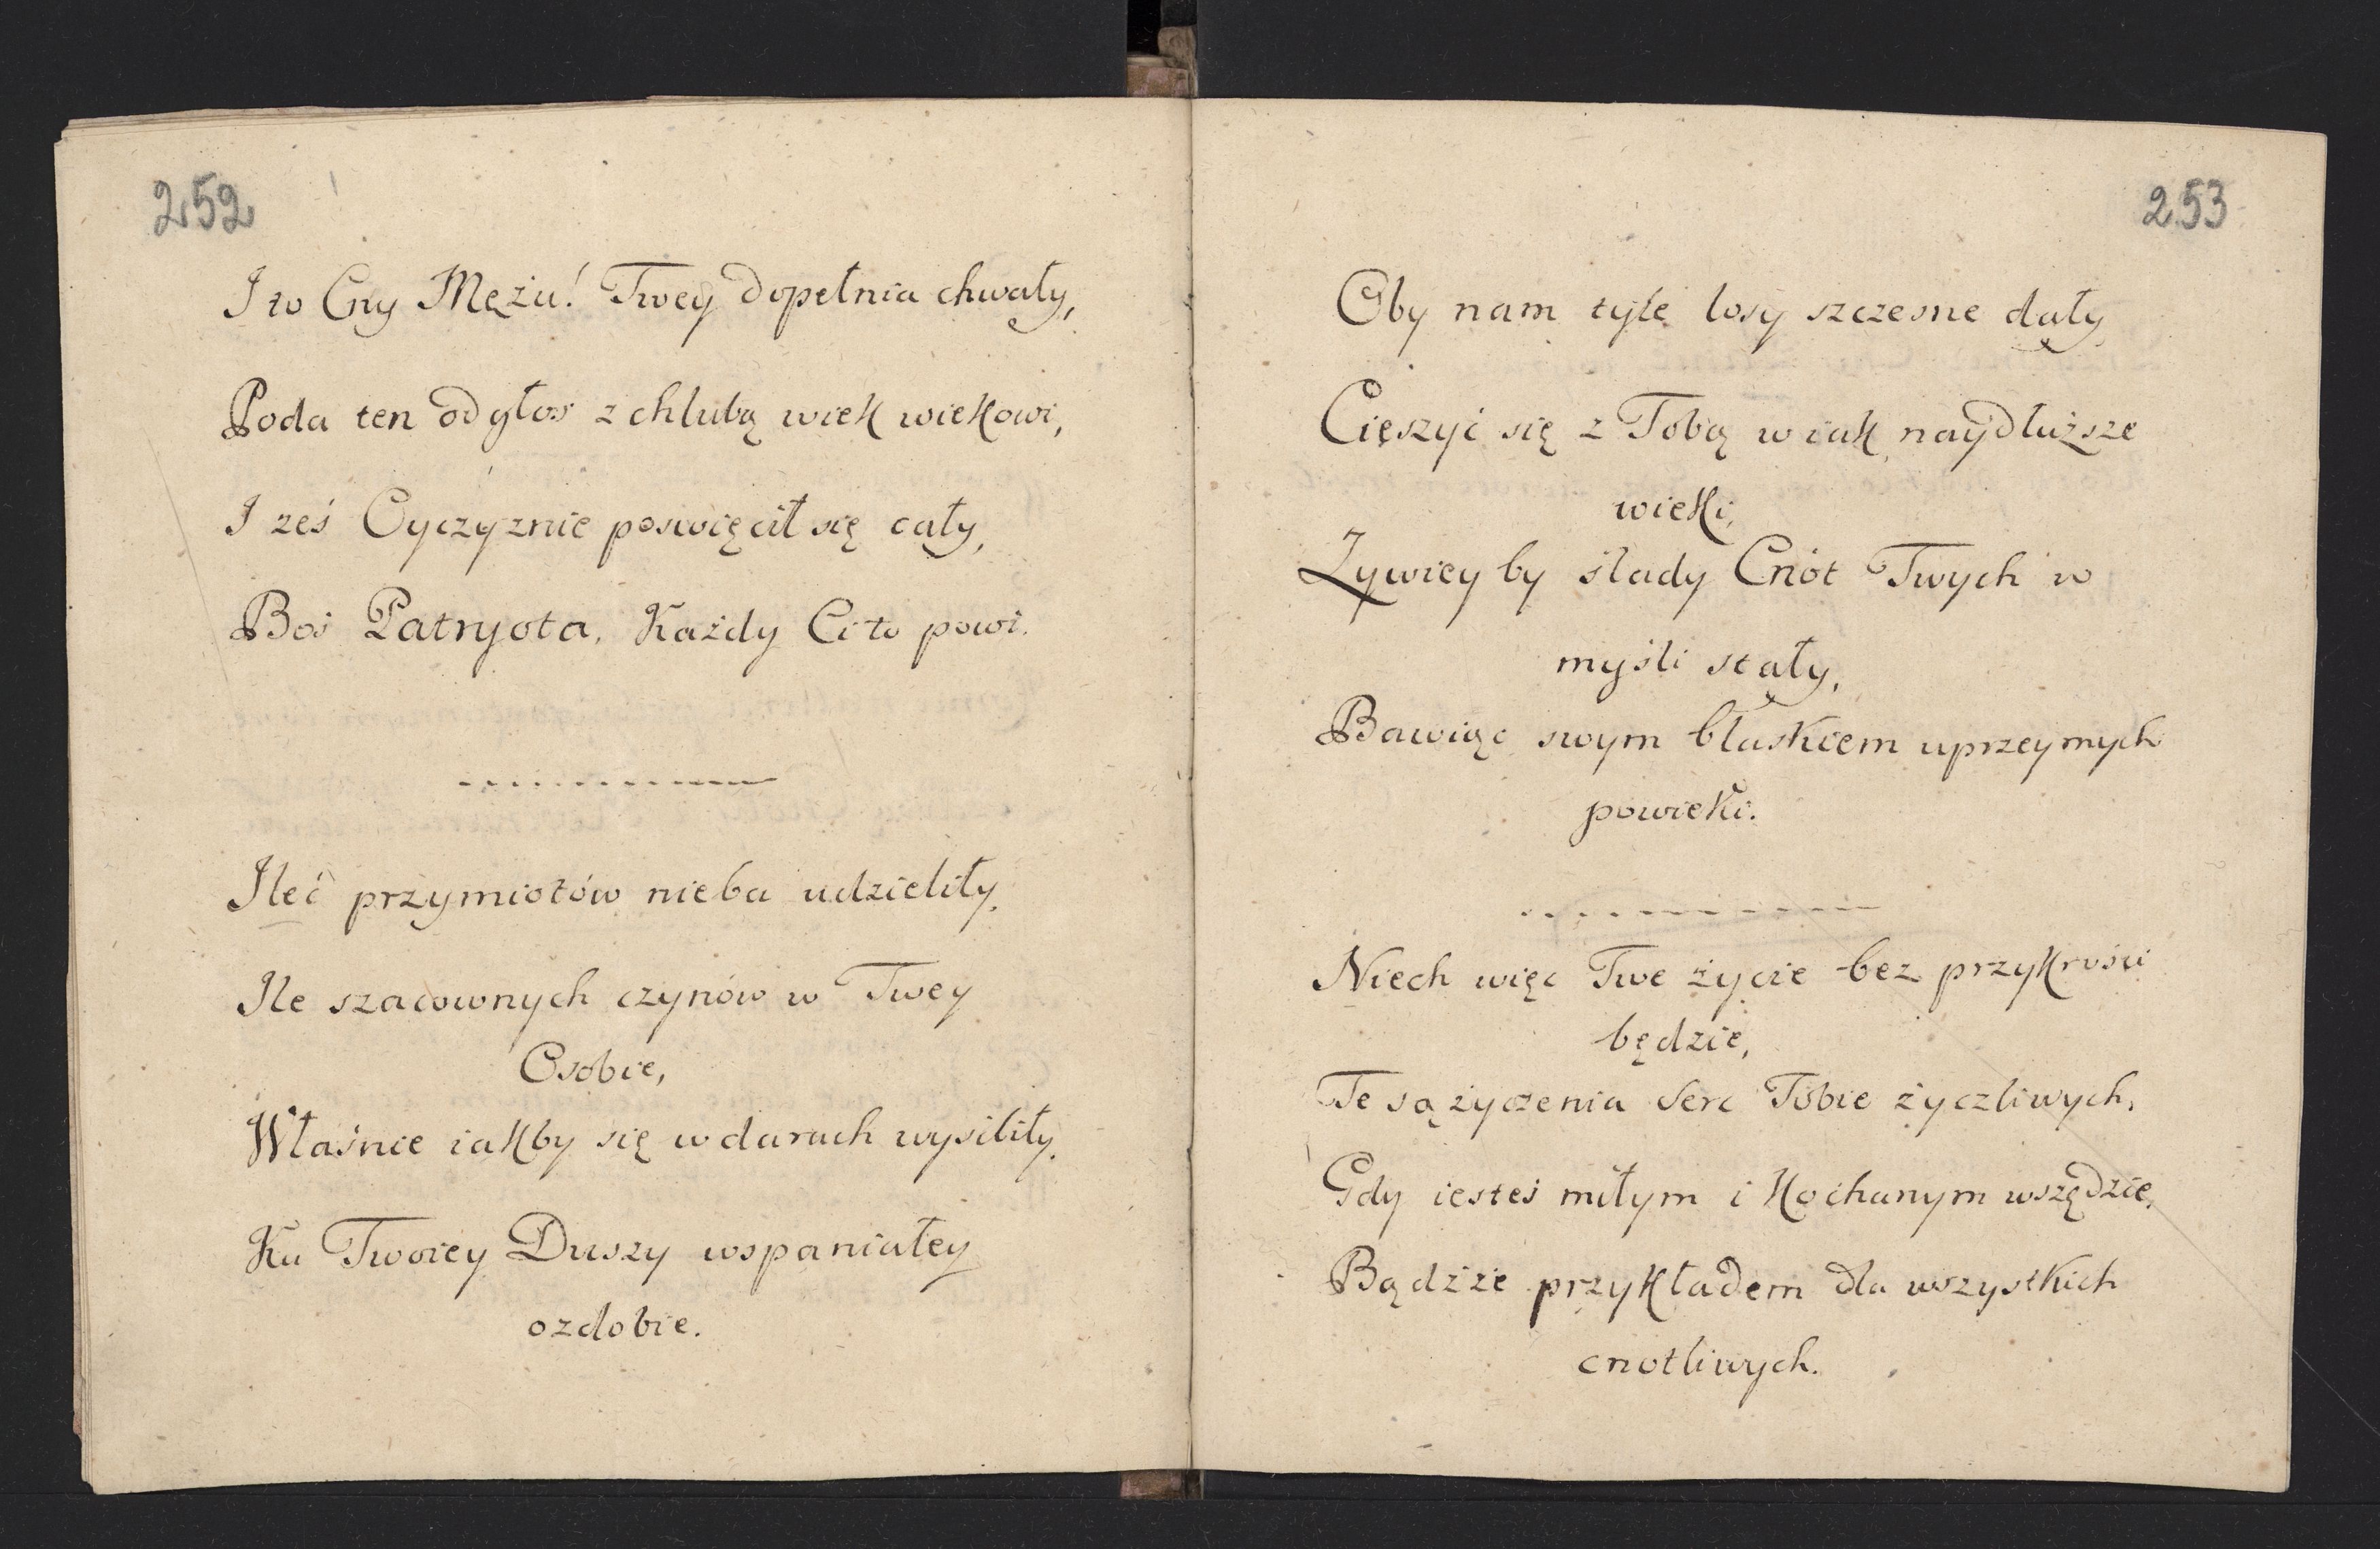 252
I to Cny Mężu! Twey dopełnia chwały,
Poda ten odgłos z chlubą wiek wiekowi,
I żeś Oyczyznie poswięcił się cały,
Boś Patryota, Każdy Ci to powi.
Ileć przymiotów nieba udzieliły,
Ile szacownych czynów w Twey
Osobie,
Właśnie iakby się w darach wysiliły,
Ku Twoiey Duszy wspaniałey
ozdobie.
253
Oby nam tyle losy szczesne dały
Cięszyć się z Tobą w iak naydłuższe
wieki,
Zywiey by ślady Cnót Twych w
myśli stały,
Bawiąc swym blaskiem uprzeymych
powieki.
Niech więc Twe życie bez przykrości
będzie,
Te są życzenia Serc Tobie życzliwych,
Gdy iesteś miłym i Kochanym wszędzie,
Bądźże przykładem dla wszystkich
cnotliwych.